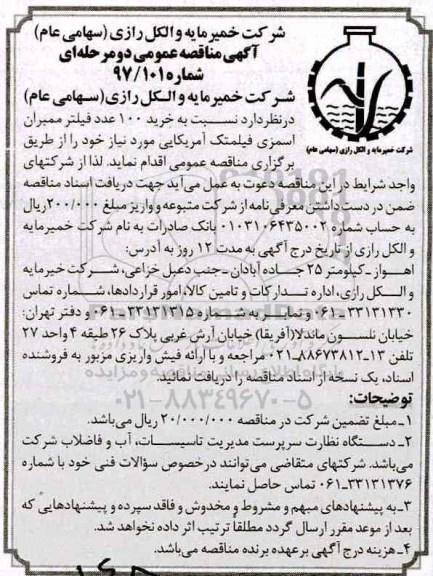 شرکت خمیرمایه و الکل رازی (سهامی عام)
آگهی مناقصه عمومی دو مرحله‌ای
شماره ۹۷/۱۰۱
شرکت خمیرمایه و الکل رازی (سهامی عام)
شرکت خمیرمایه و الکل رازی (سهامی عام)
در نظر دارد نسبت به خرید ۱۰۰ عدد فیلتر ممبران
اسمزی فیلمتک آمریکایی مورد نیاز خود را از طریق
برگزاری مناقصه عمومی اقدام نماید. لذا از شرکتهای
واجد شرایط در این مناقصه دعوت به عمل می‌آید جهت دریافت اسناد مناقصه
ضمن در دست داشتن معرفی‌نامه از شرکت متبوعه و واریز مبلغ ۲۰۰/۰۰۰ ریال
به حساب شماره ۰۱۰۳۱۰۶۴۳۵۰۰۲ بانک صادرات به نام شرکت خمیرمایه
و الکل رازی از تاریخ درج آگهی به مدت ۱۲ روز به آدرس:
اهواز ـ کیلومتر ۲۵ جاده آبادان ـ جنب دعبل خزاعی، شرکت خیرمایه
و الکل رازی، اداره تدارکات و تامین کالا، امور قراردادها، شماره تماس
۰۶۱-۳۳۱۳۱۳۳۰ و نمابر به شماره ۰۶۱-۳۳۱۳۱۳۱۵ و دفتر تهران:
خیابان نلسون ماندلا (آفریقا) خیابان آرش غربی پلاک ۲۶ طبقه ۴ واحد ۲۷
تلفن ۱۳-۰۲۱-۸۸۶۷۳۸۱۲ مراجعه و با ارائه فیش واریزی مزبور به فروشنده
اسناد، یک نسخه از اسناد مناقصه را دریافت نمائید.
توضیحات:
۰۲۱-۸۸۳۴۹۶۷۰-۵
۱ـ مبلغ تضمین شرکت در مناقصه ۲۰/۰۰۰/۰۰۰ ریال می‌باشد.
۲ـ دستگاه نظارت سرپرست مدیریت تاسیسات، آب و فاضلاب شرکت
می‌باشد. شرکتهای متقاضی می‌توانند درخصوص سؤالات فنی خود با شماره
۰۶۱-۳۳۱۳۱۳۷۶ تماس حاصل نمایند.
۳ـ به پیشنهادهای مبهم و مشروط و مخدوش و فاقد سپرده و پیشنهادهایی که
بعد از موعد مقرر ارسال گردد مطلقاً ترتیب اثر داده نخواهد شد.
۴ـ هزینه درج آگهی بر عهده برنده مناقصه می‌باشد.